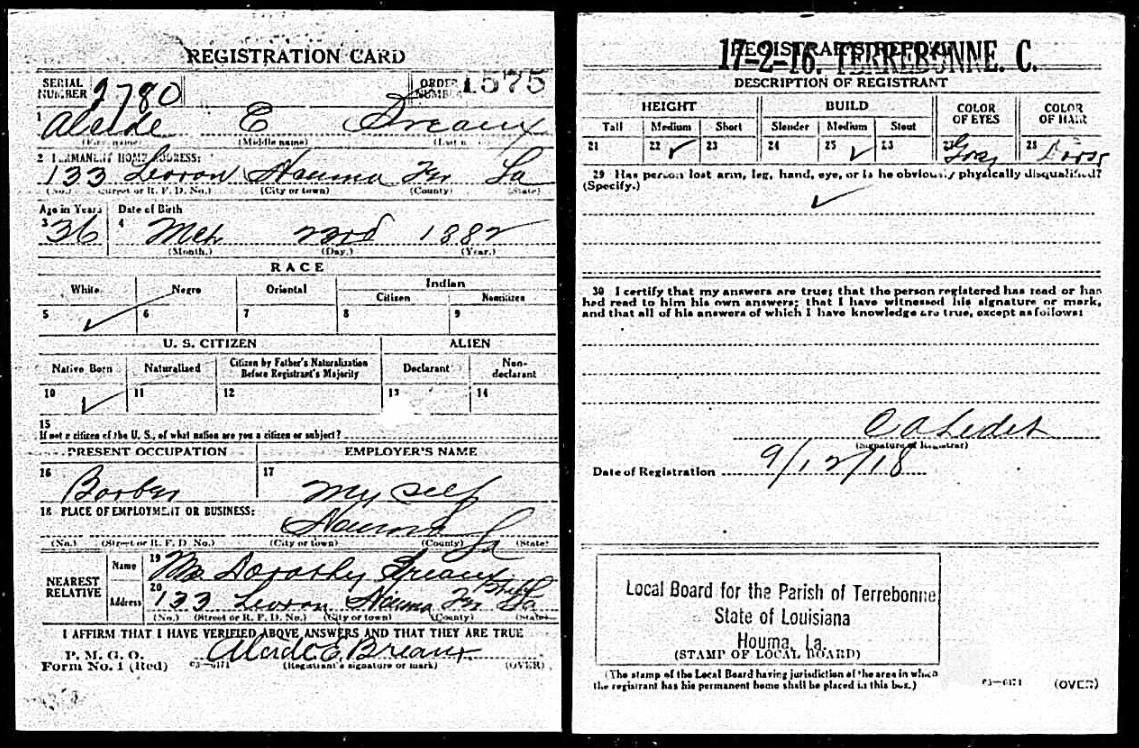 REGISTRATION CARD
SERIAL NUMBER 2780 ORDER NUMBER 1575
1 Alcide E Breaux
(First name) (Middle name) (Last name)
2 PERMANENT HOME ADDRESS:
133 Houma La
(No.) (Street or R. F. D. No.) (City or town) (County) (State)
Age in Years Date of Birth
3 36 4 Mch 23rd 1882
(Month.) (Day.) (Year.)
RACE
White Negro Oriental Indian
Citizen Noncitizen
5 ✓ 6 7 8 9
U. S. CITIZEN ALIEN
Native Born Naturalized Citizen by Father's Naturalization Before Registrant's Majority Declarant Non-declarant
10 ✓ 11 12 13 14
15
If not a citizen of the U. S., of what nation are you a citizen or subject?
PRESENT OCCUPATION EMPLOYER'S NAME
16 Barber 17 My self
18 PLACE OF EMPLOYMENT OR BUSINESS:
Houma La
(No.) (Street or R. F. D. No.) (City or town) (County) (State)
NEAREST RELATIVE
Name 19 Mrs Dorothy Breaux
Address 20 133 Houma La
(No.) (Street or R. F. D. No.) (City or town) (County) (State)
I AFFIRM THAT I HAVE VERIFIED ABOVE ANSWERS AND THAT THEY ARE TRUE
P. M. G. O.
Form No. 1 (Red) 03—6171 Alcide E Breaux
(Registrant's signature or mark) (OVER)
REGISTRAR'S REPORT
17-2-16. TERREBONNE. C.
DESCRIPTION OF REGISTRANT
HEIGHT BUILD COLOR OF EYES COLOR OF HAIR
Tall Medium Short Slender Medium Stout
21 22 ✓ 23 24 25 ✓ 26 27 Gray 28
29 Has person lost arm, leg, hand, eye, or is he obviously physically disqualified?
(Specify.) ✓
30 I certify that my answers are true; that the person registered has read or has
had read to him his own answers; that I have witnessed his signature or mark,
and that all of his answers of which I have knowledge are true, except as follows:
C A Ledet
(Signature of Registrar)
Date of Registration 9/12/18
Local Board for the Parish of Terrebonne
State of Louisiana
Houma, La.
(STAMP OF LOCAL BOARD)
(The stamp of the Local Board having jurisdiction of the area in which
the registrant has his permanent home shall be placed in this box.)
03—6171 (OVER)